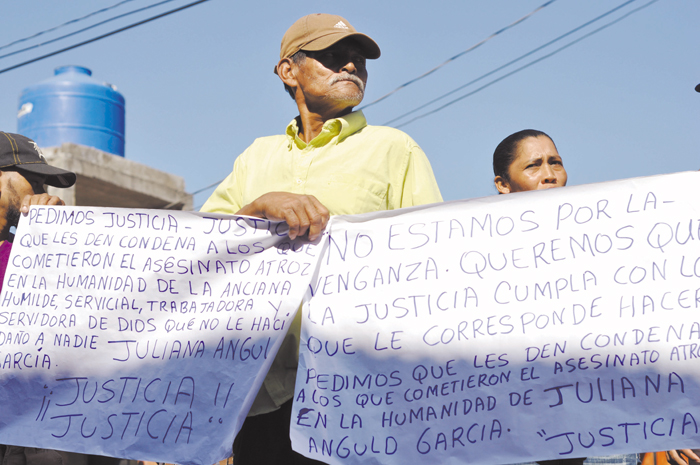 PEDIMOS JUSTICIA - JUSTIC
QUE LES DEN CONDENA A LOS QUE
COMETIERON EL ASESINATO ATROZ
EN LA HUMANIDAD DE LA ANCIANA
HUMILDE, SERVICIAL, TRABAJADORA Y
SERVIDORA DE DIOS QUÉ NO LE HACI
DAÑO A NADIE JULIANA ANGUL
GARCÍA.
¡¡JUSTICIA!!
JUSTICIA
NO ESTAMOS POR LA-
VENGANZA. QUEREMOS QUE
LA JUSTICIA CUMPLA CON LO
QUE LE CORRESPONDE HACER
PEDIMOS QUE LES DEN CONDENA
A LOS QUE COMETIERON EL ASESINATO ATRO
EN LA HUMANIDAD DE JULIANA
ANGULO GARCIA. "JUSTICIA